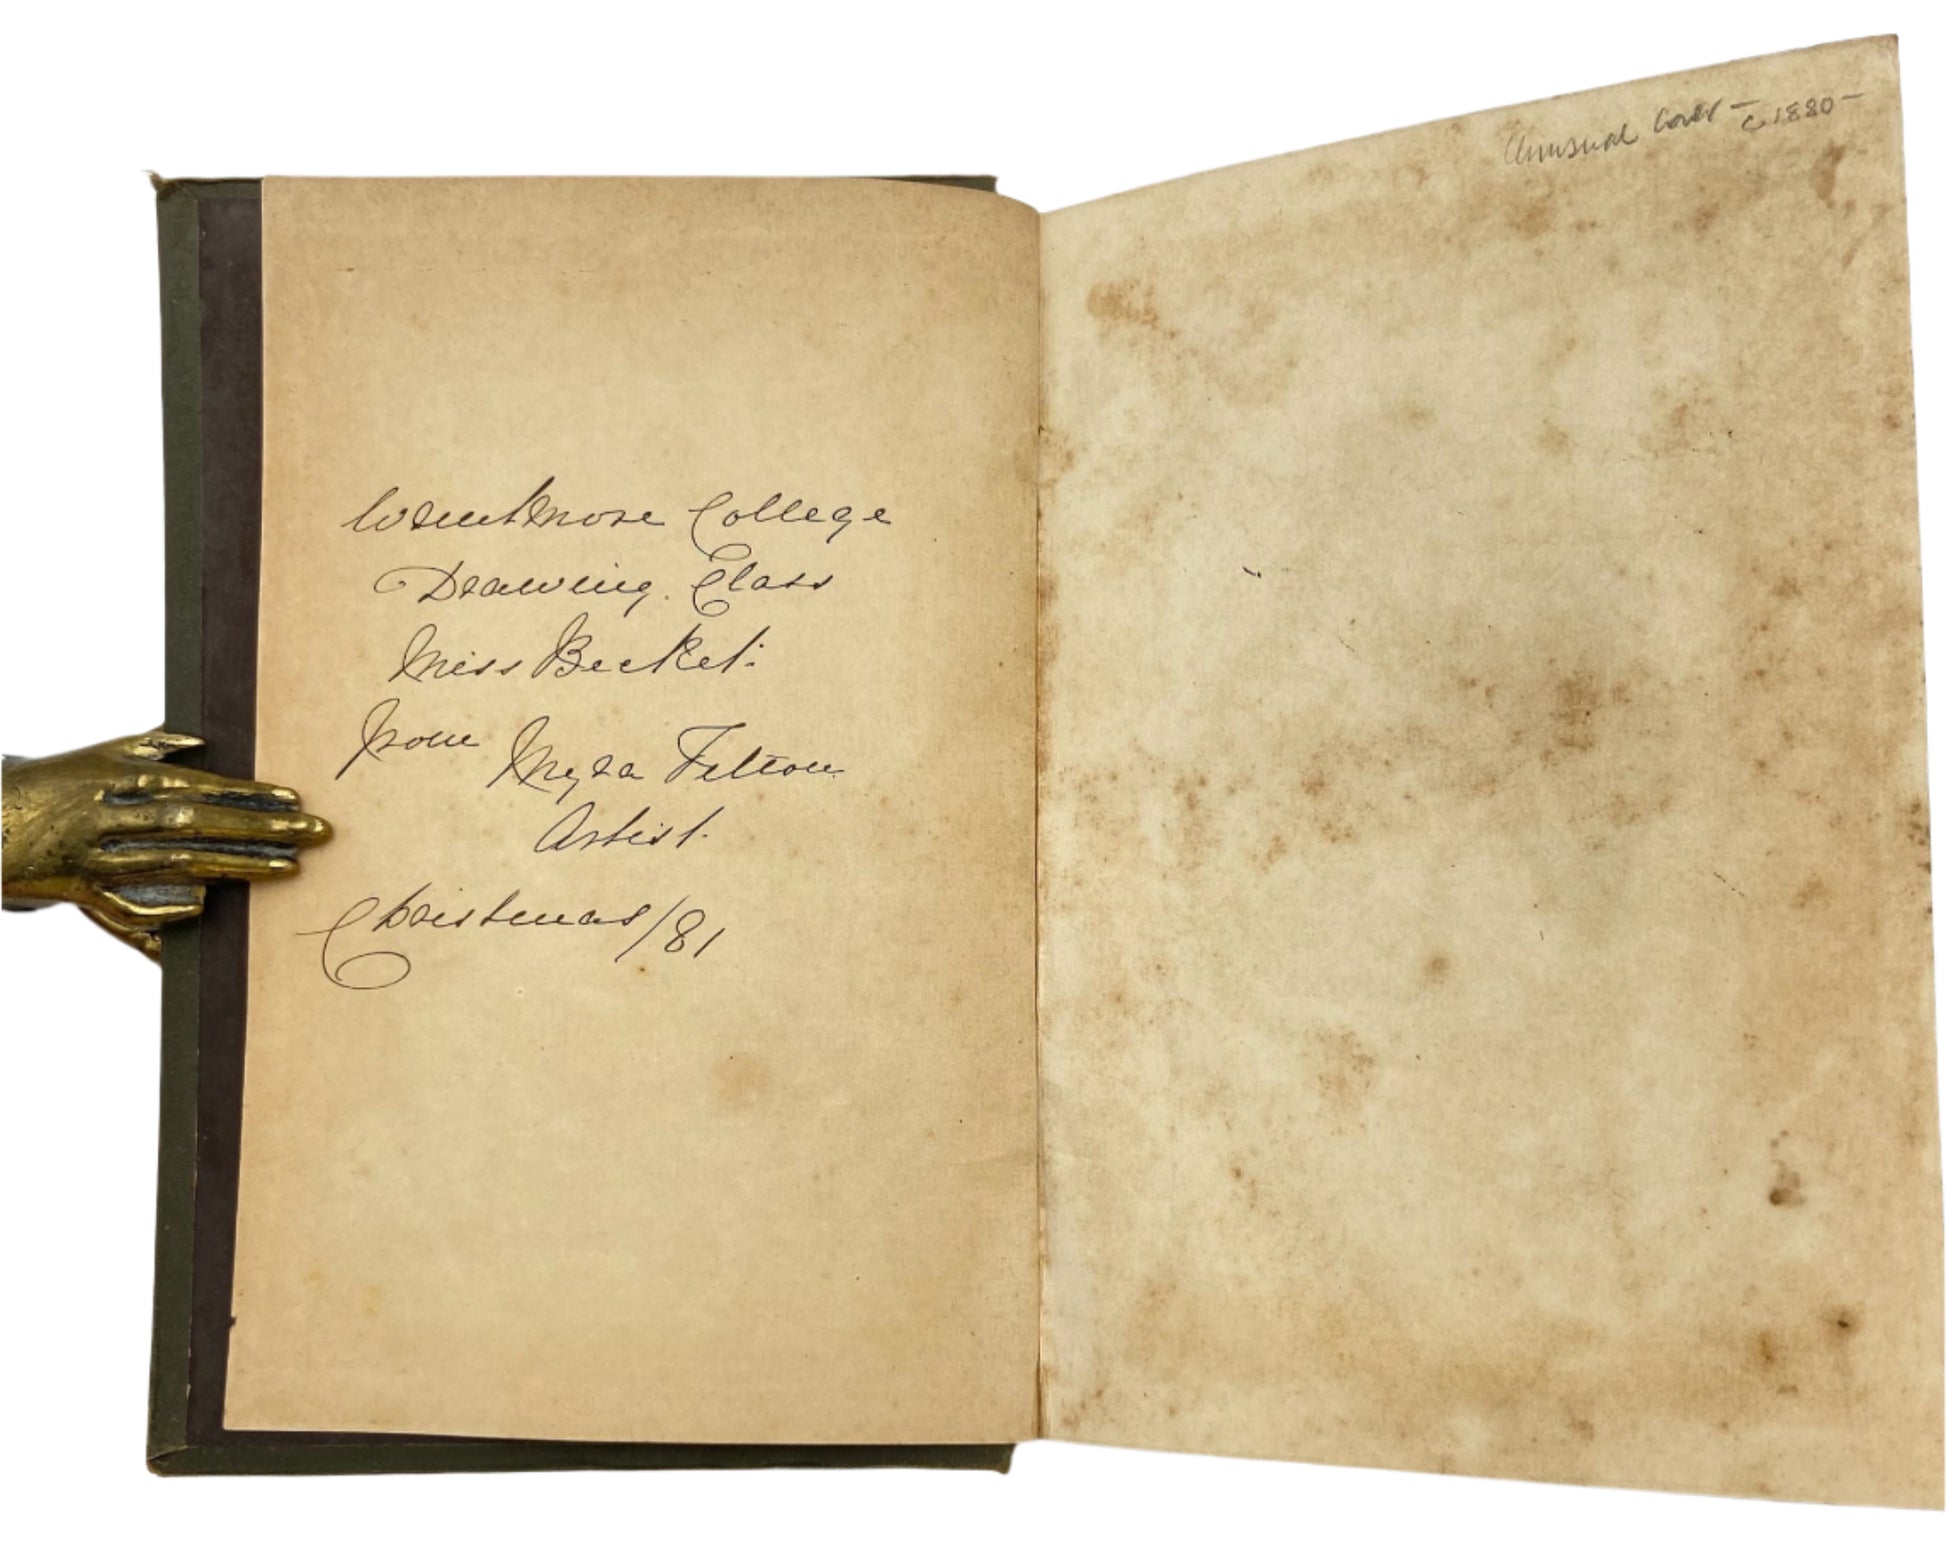 College
Drawing. Class
Miss Becket:
from Myra Felton
Artist.
Christmas/81
Unusual Cover – c 1880 –